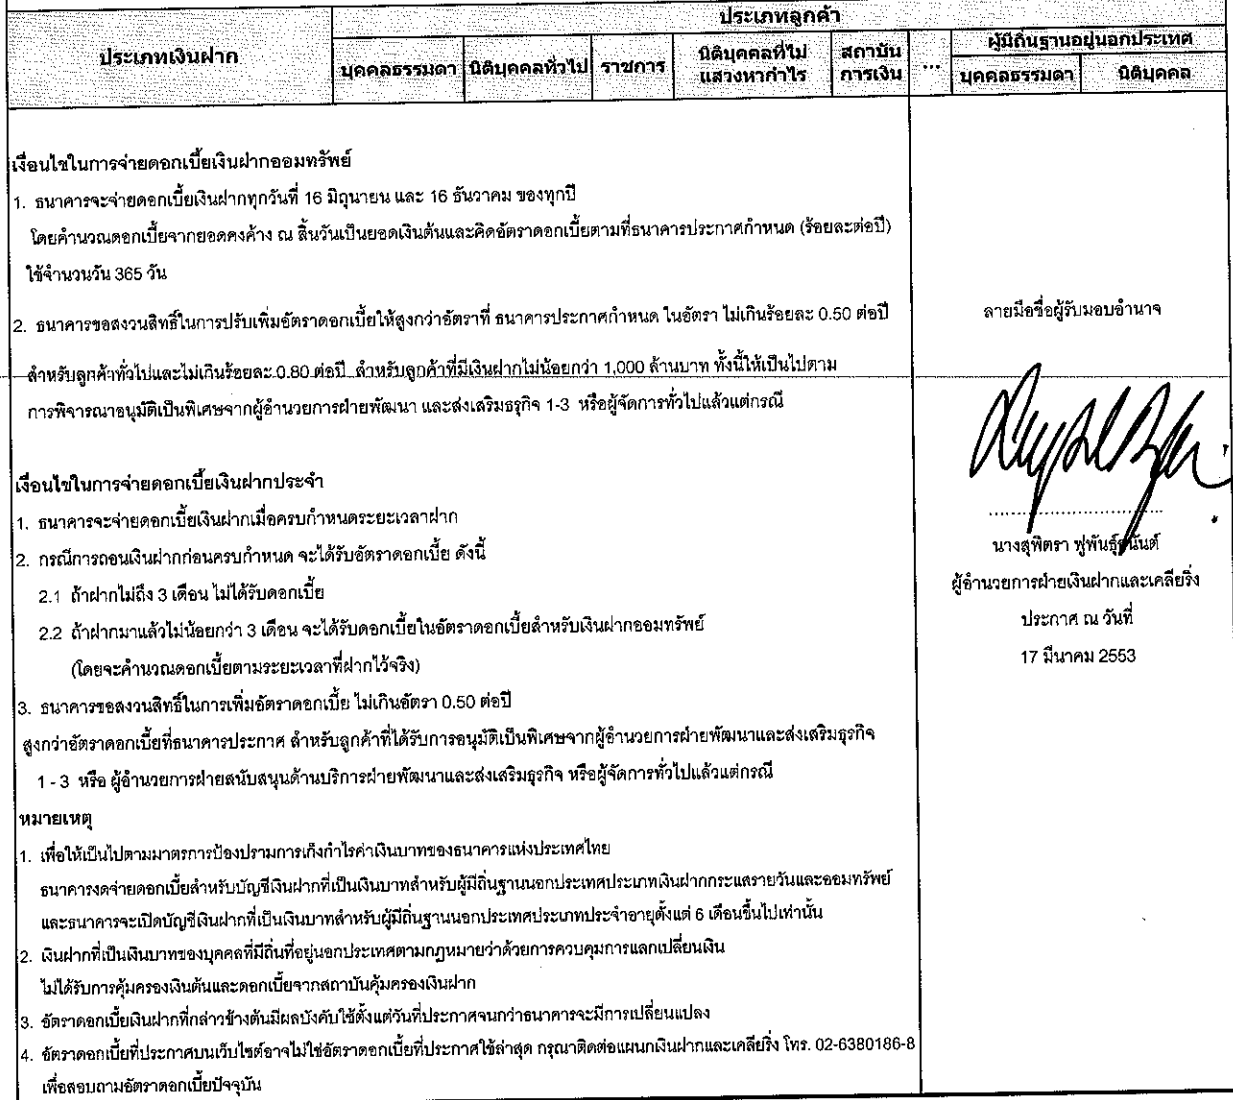 ประเภทลูกค้า
ประเภทเงินฝาก
บุคคลธรรมดา
นิติบุคคลทั่วไป
ราชการ
นิติบุคคลที่ไม่
แสวงหากำไร
สถาบัน
การเงิน
...
ผู้มีถิ่นฐานอยู่นอกประเทศ
บุคคลธรรมดา
นิติบุคคล
เงื่อนไขในการจ่ายดอกเบี้ยเงินฝากออมทรัพย์
1. ธนาคารจะจ่ายดอกเบี้ยเงินฝากทุกวันที่ 16 มิถุนายน และ 16 ธันวาคม ของทุกปี
โดยคำนวณดอกเบี้ยจากยอดคงค้าง ณ สิ้นวันเป็นยอดเงินต้นและคิดอัตราดอกเบี้ยตามที่ธนาคารประกาศกำหนด (ร้อยละต่อปี)
ใช้จำนวนวัน 365 วัน
2. ธนาคารขอสงวนสิทธิ์ในการปรับเพิ่มอัตราดอกเบี้ยให้สูงกว่าอัตราที่ ธนาคารประกาศกำหนด ในอัตรา ไม่เกินร้อยละ 0.50 ต่อปี
สำหรับลูกค้าทั่วไปและไม่เกินร้อยละ 0.80 ต่อปี สำหรับลูกค้าที่มีเงินฝากไม่น้อยกว่า 1,000 ล้านบาท ทั้งนี้ให้เป็นไปตาม
การพิจารณาอนุมัติเป็นพิเศษจากผู้อำนวยการฝ่ายพัฒนา และส่งเสริมธุรกิจ 1-3 หรือผู้จัดการทั่วไปแล้วแต่กรณี
เงื่อนไขในการจ่ายดอกเบี้ยเงินฝากประจำ
1. ธนาคารจะจ่ายดอกเบี้ยเงินฝากเมื่อครบกำหนดระยะเวลาฝาก
2. กรณีการถอนเงินฝากก่อนครบกำหนด จะได้รับอัตราดอกเบี้ย ดังนี้
2.1 ถ้าฝากไม่ถึง 3 เดือน ไม่ได้รับดอกเบี้ย
2.2 ถ้าฝากมาแล้วไม่น้อยกว่า 3 เดือน จะได้รับดอกเบี้ยในอัตราดอกเบี้ยสำหรับเงินฝากออมทรัพย์
(โดยจะคำนวณดอกเบี้ยตามระยะเวลาที่ฝากไว้จริง)
3. ธนาคารขอสงวนสิทธิ์ในการเพิ่มอัตราดอกเบี้ย ไม่เกินอัตรา 0.50 ต่อปี
สูงกว่าอัตราดอกเบี้ยที่ธนาคารประกาศ สำหรับลูกค้าที่ได้รับการอนุมัติเป็นพิเศษจากผู้อำนวยการฝ่ายพัฒนาและส่งเสริมธุรกิจ
1 - 3 หรือ ผู้อำนวยการฝ่ายสนับสนุนด้านบริการฝ่ายพัฒนาและส่งเสริมธุรกิจ หรือผู้จัดการทั่วไปแล้วแต่กรณี
หมายเหตุ
1. เพื่อให้เป็นไปตามมาตรการป้องปรามการเก็งกำไรค่าเงินบาทของธนาคารแห่งประเทศไทย
ธนาคารงดจ่ายดอกเบี้ยสำหรับบัญชีเงินฝากที่เป็นเงินบาทสำหรับผู้มีถิ่นฐานนอกประเทศประเภทเงินฝากกระแสรายวันและออมทรัพย์
และธนาคารจะเปิดบัญชีเงินฝากที่เป็นเงินบาทสำหรับผู้มีถิ่นฐานนอกประเทศประเภทประจำอายุตั้งแต่ 6 เดือนขึ้นไปเท่านั้น
2. เงินฝากที่เป็นเงินบาทของบุคคลที่มีถิ่นที่อยู่นอกประเทศตามกฎหมายว่าด้วยการควบคุมการแลกเปลี่ยนเงิน
ไม่ได้รับการคุ้มครองเงินต้นและดอกเบี้ยจากสถาบันคุ้มครองเงินฝาก
3. อัตราดอกเบี้ยเงินฝากที่กล่าวข้างต้นมีผลบังคับใช้ตั้งแต่วันที่ประกาศจนกว่าธนาคารจะมีการเปลี่ยนแปลง
4. อัตราดอกเบี้ยที่ประกาศบนเว็บไซต์อาจไม่ใช่อัตราดอกเบี้ยที่ประกาศใช้ล่าสุด กรุณาติดต่อแผนกเงินฝากและเคลียริ่ง โทร. 02-6380186-8
เพื่อสอบถามอัตราดอกเบี้ยปัจจุบัน
ลายมือชื่อผู้รับมอบอำนาจ
นางสุพิตรา
ผู้อำนวยการฝ่ายเงินฝากและเคลียริ่ง
ประกาศ ณ วันที่
17 มีนาคม 2553